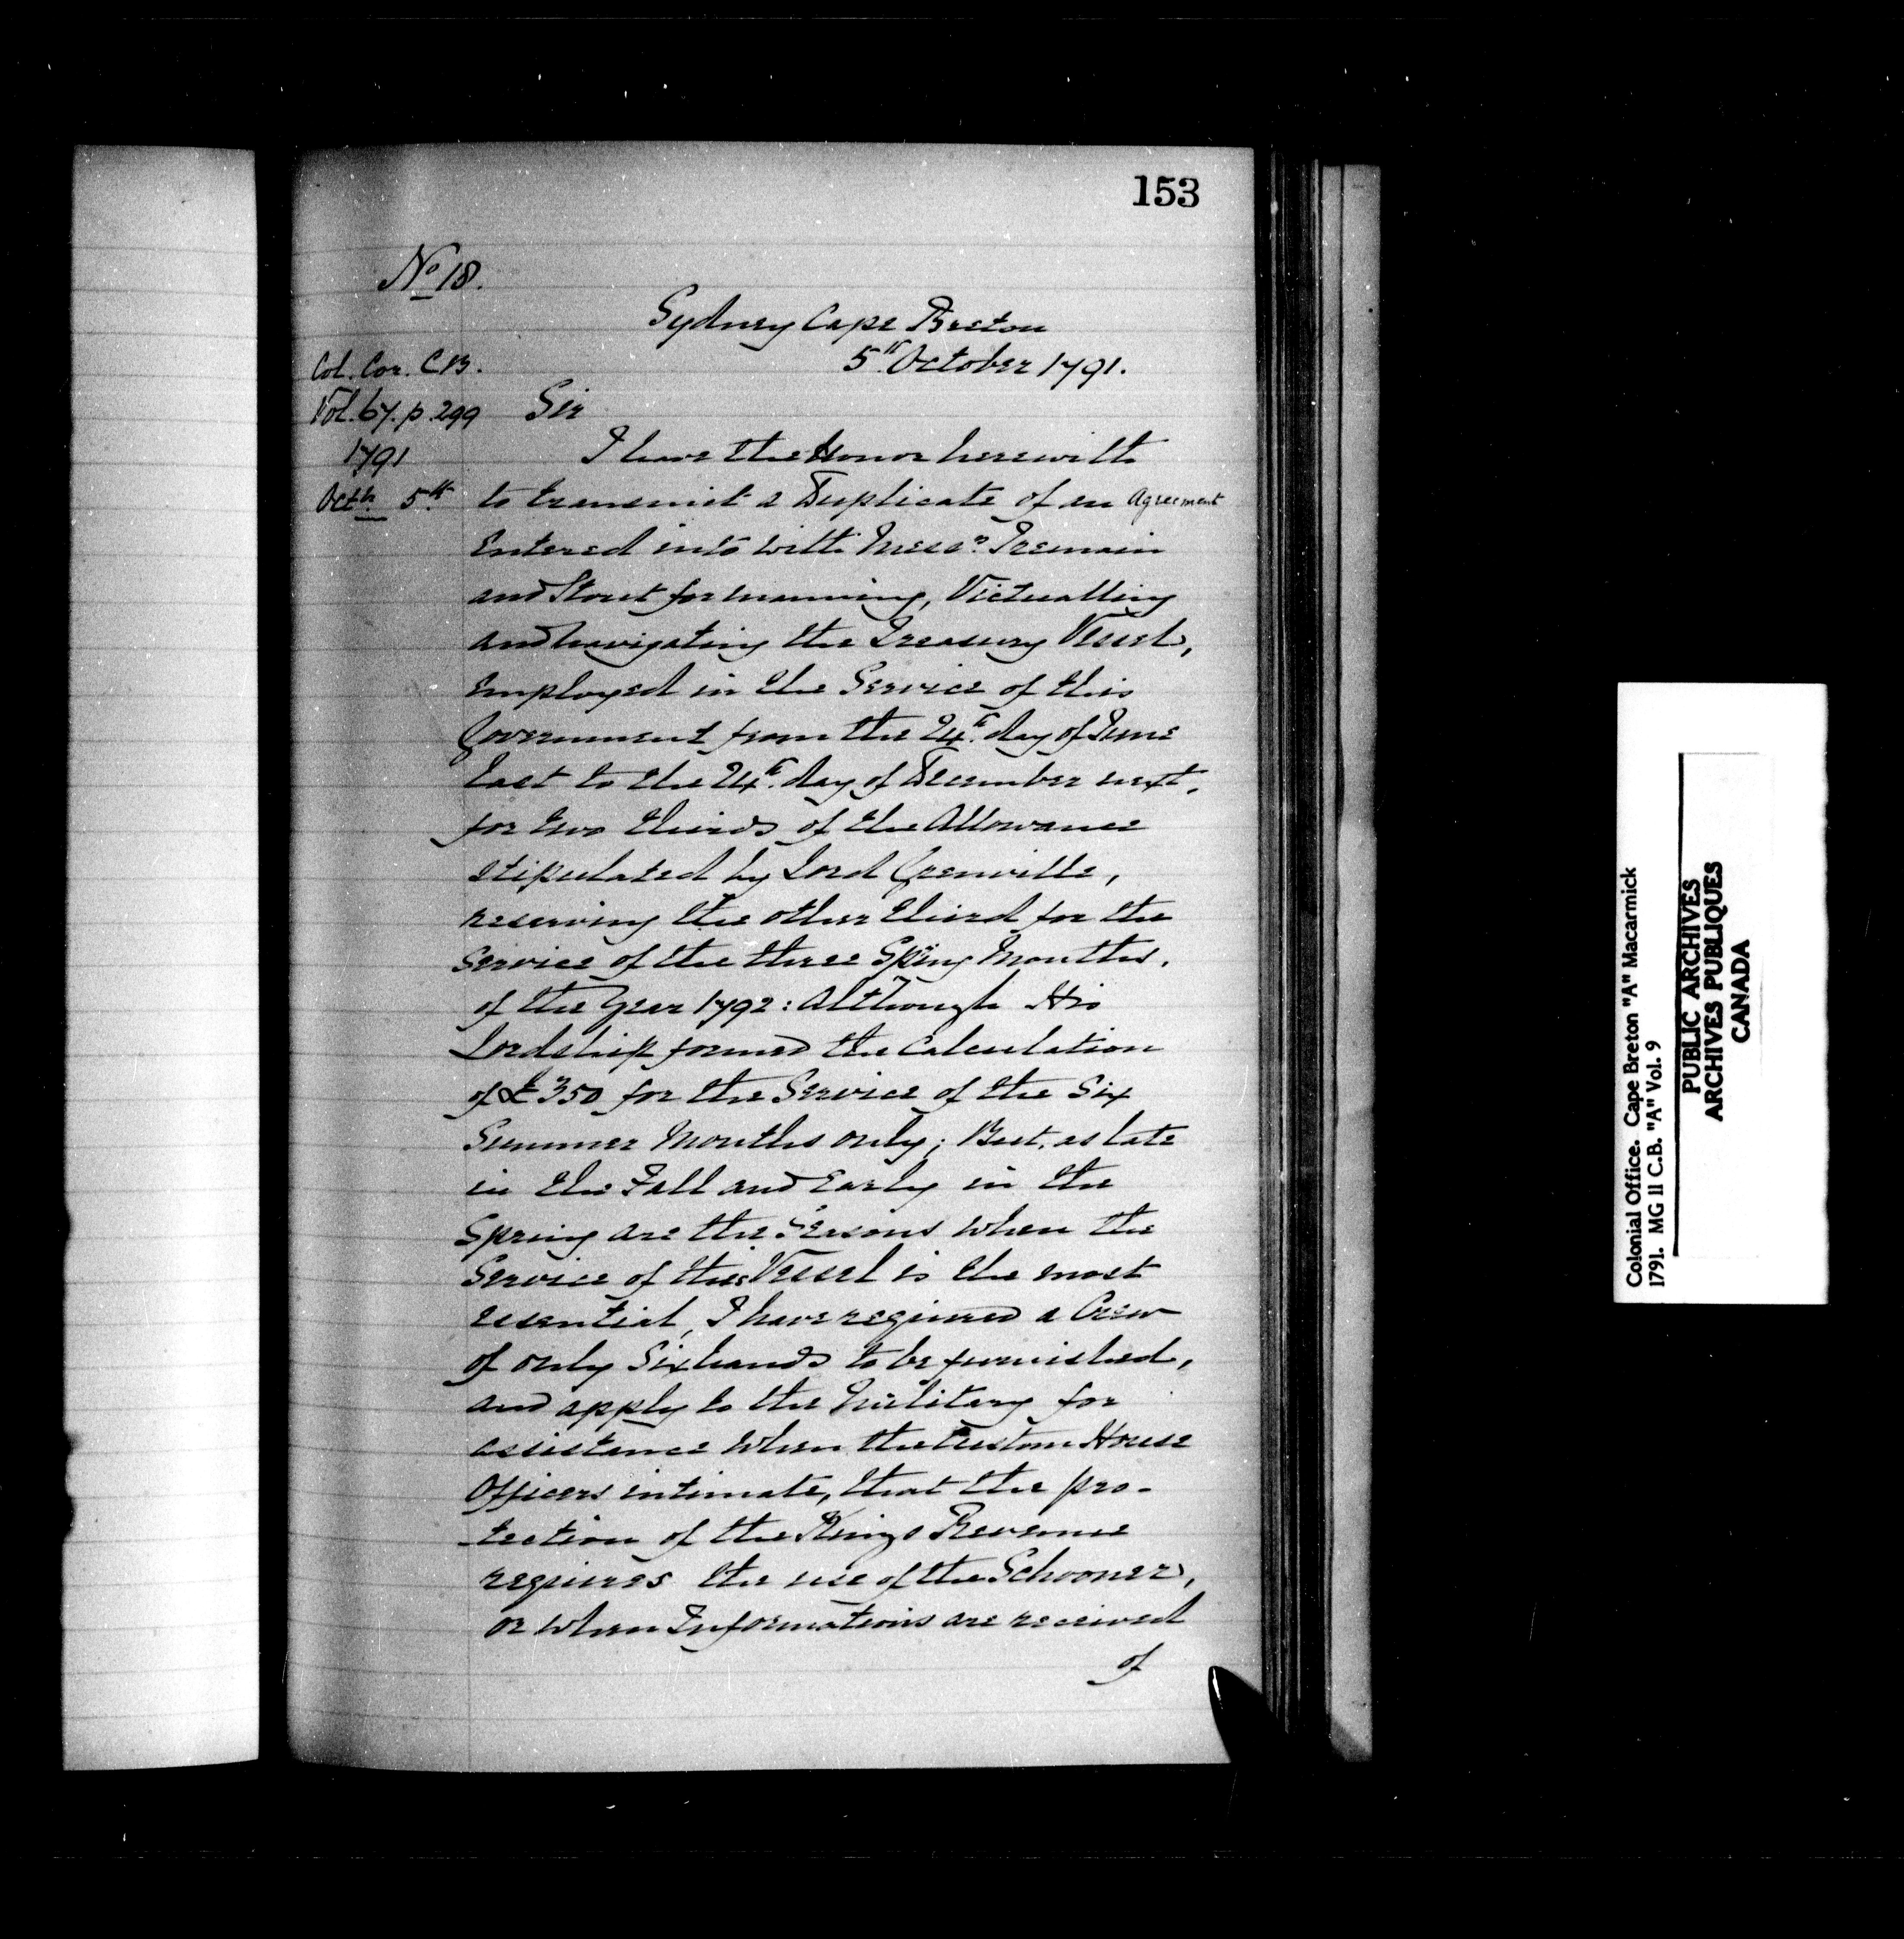 153
No 18.
Sydney Cape Breton
5th October 1791.
Col. Cor. C B.
Vol. 67. p. 299
1791
Octbr 5th
Sir
I have the Honor herewith
to transmit a Duplicate of an Agreement
Entered into with Messrs. Tremain
and Stout for manning, Victualling
and navigating the Treasury Vessel,
employed in the Service of this
Government from the 24th day of June
last to the 24th day of December next,
for two thirds of the Allowance
stipulated by Lord Grenville,
reserving the other third for the
Service of the three Spring Months,
of the Year 1792: Although His
Lordship formed the Calculation
of £350 for the Service of the Six
Summer Months only; But, as late
in the Fall and Early in the
Spring are the Seasons when the
Service of this Vessel is the most
essential, I have required a Crew
of only Six hands to be furnished,
and apply to the Military for
assistance when the Custom House
Officers intimate, that the pro-
tection of the Kings Revenue
requires the use of the Schooner,
or when Informations are received
of
Colonial Office. Cape Breton "A" Macarmick
1791. MG 11 C.B. "A" Vol. 9
PUBLIC ARCHIVES
ARCHIVES PUBLIQUES
CANADA